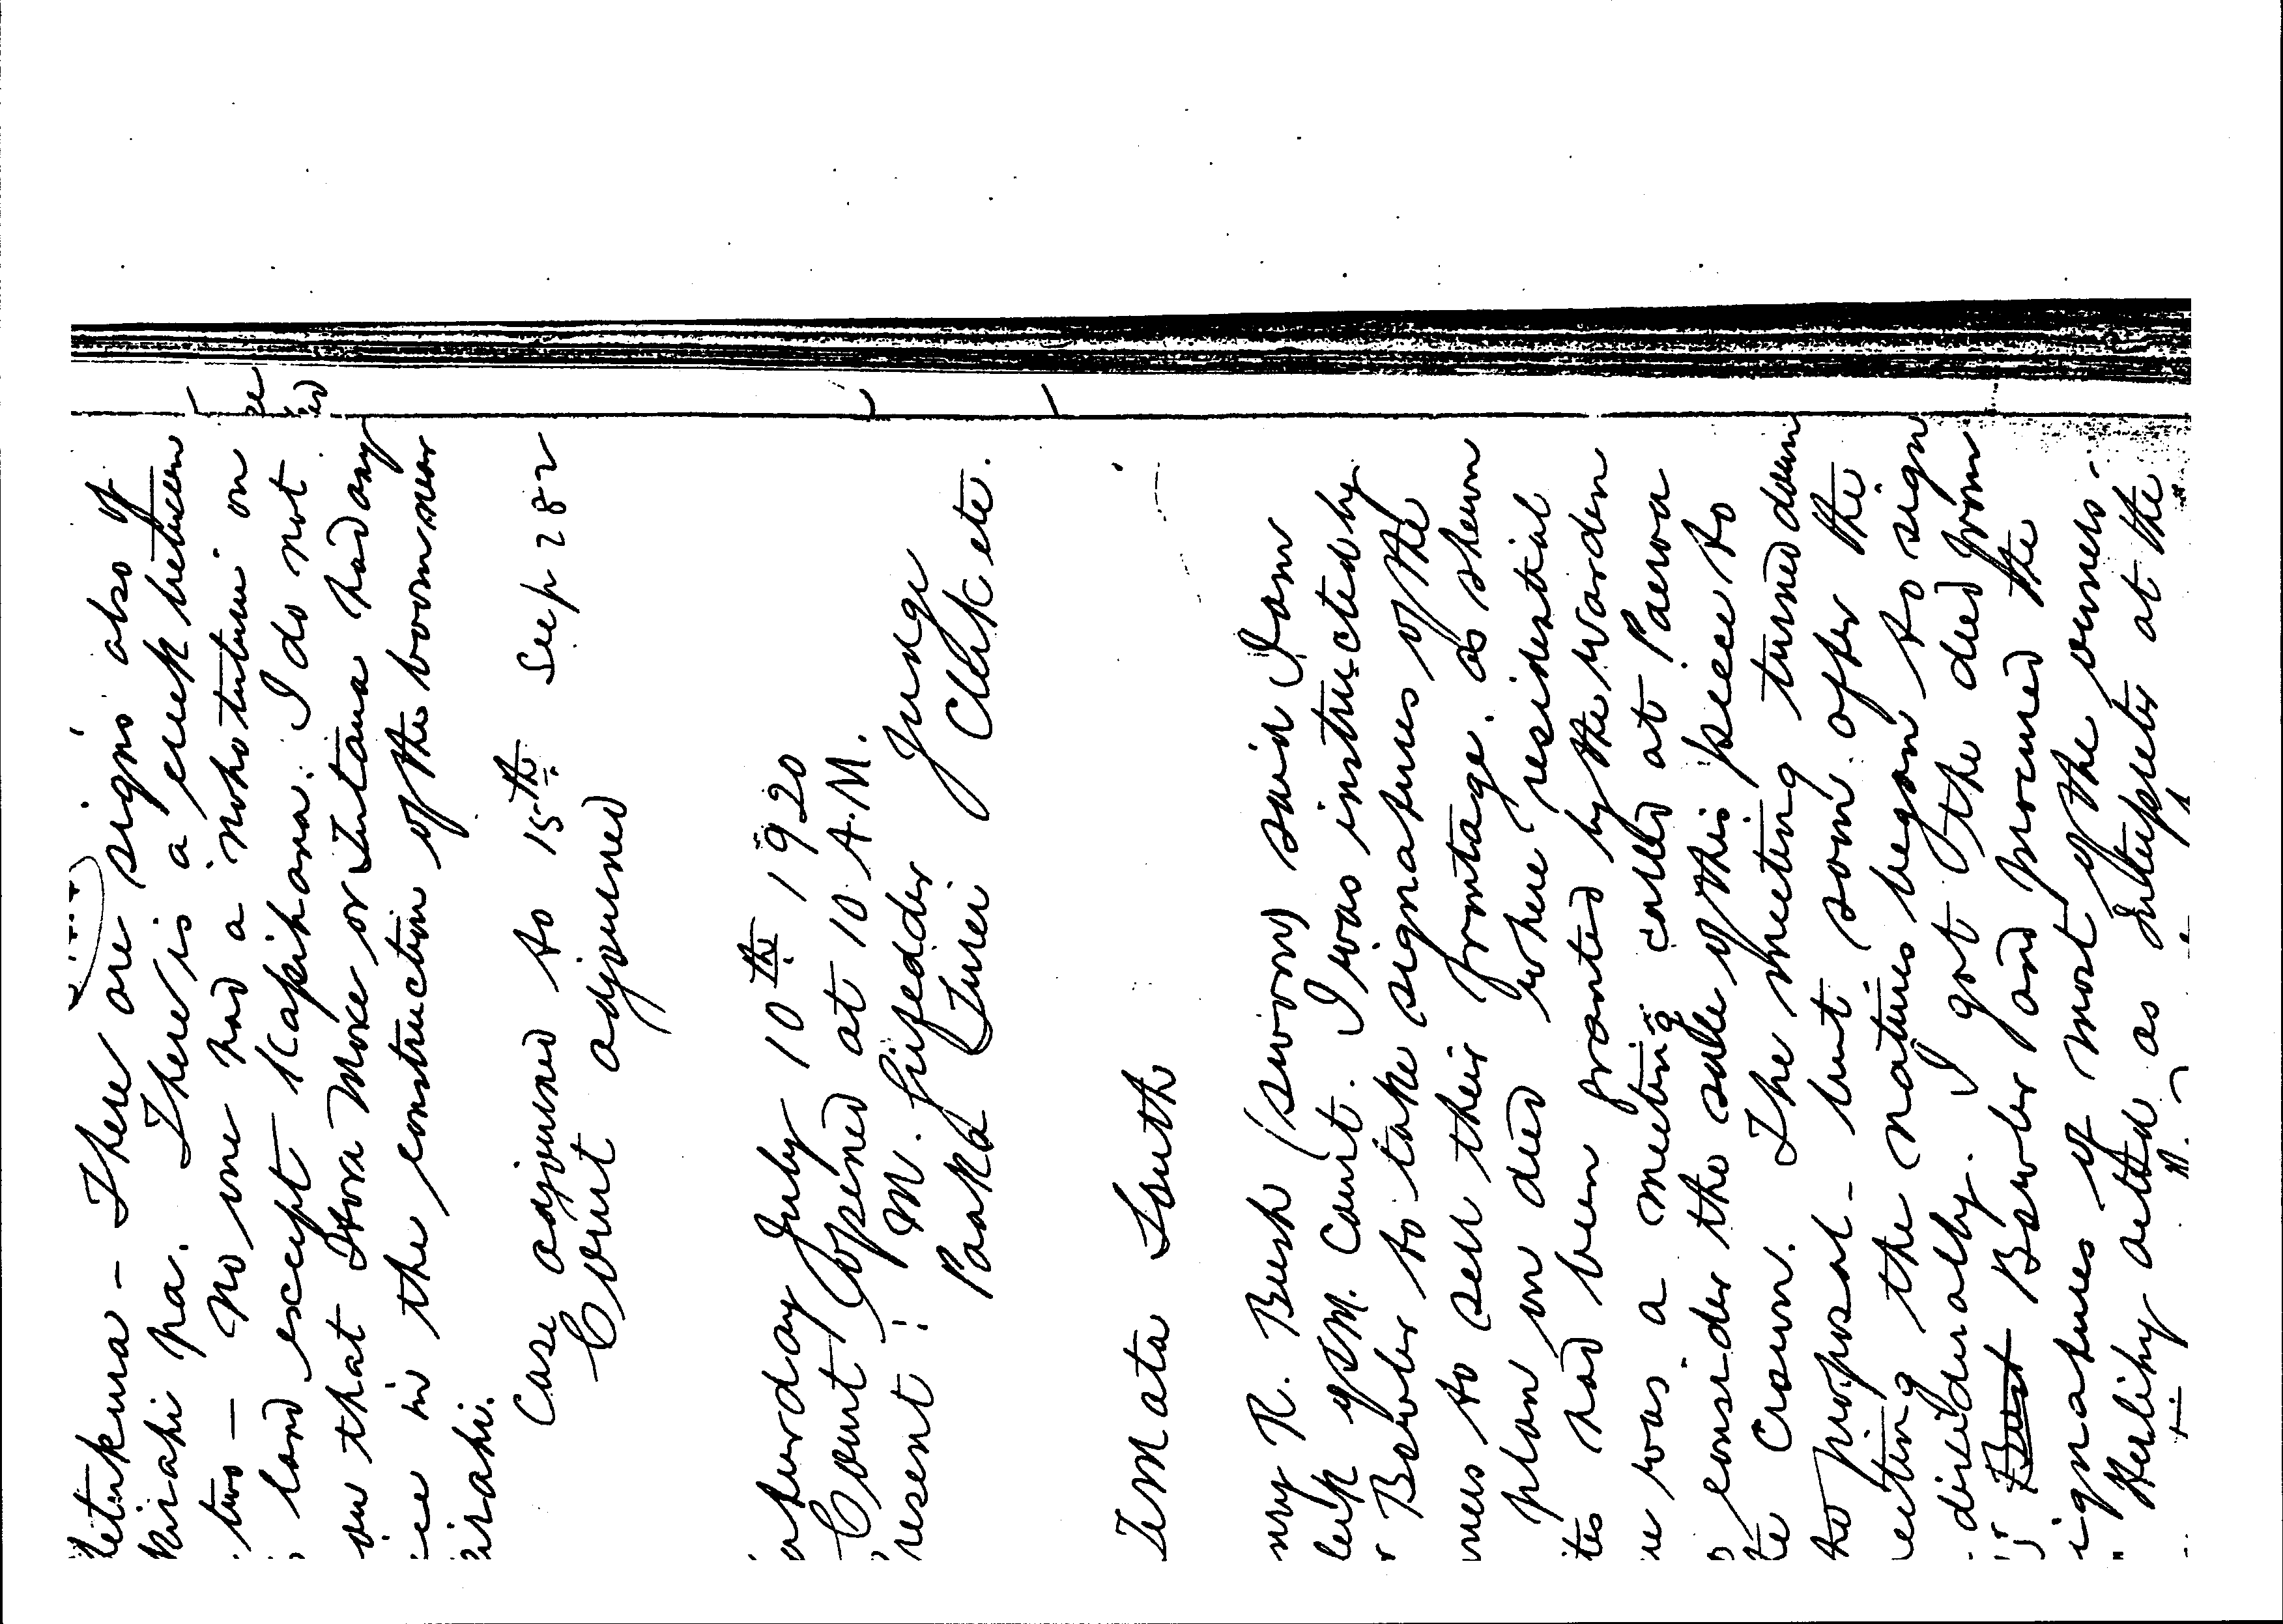 There are signs also of
kirahi pa. There is a creek between
two — No one had a nohotuturu on
land except Kapihana. I do not
that Itora Moke or Tutana had any
in the construction of the boom near
Case adjourned to 15th Sep 282
Court adjourned
July 10th 1920
Court opened at 10 A.M.
M. Judge
Paaka Turei Clerk etc.
Te Mata South
R. Bush (sworn) said I am
M. Court. I was instructed by
Bowler to take signatures of the
to sell their frontage. as shewn
plan on deed where residential
had been granted by the Warden
was a meeting called at Paeroa
consider the sale of this piece to
Crown. The meeting turned down
proposal - but soon after the
the natives began to sign
I got the deed from
Bowler and procured the
of most of the owners.
Herlihy acted as Interpreter at the